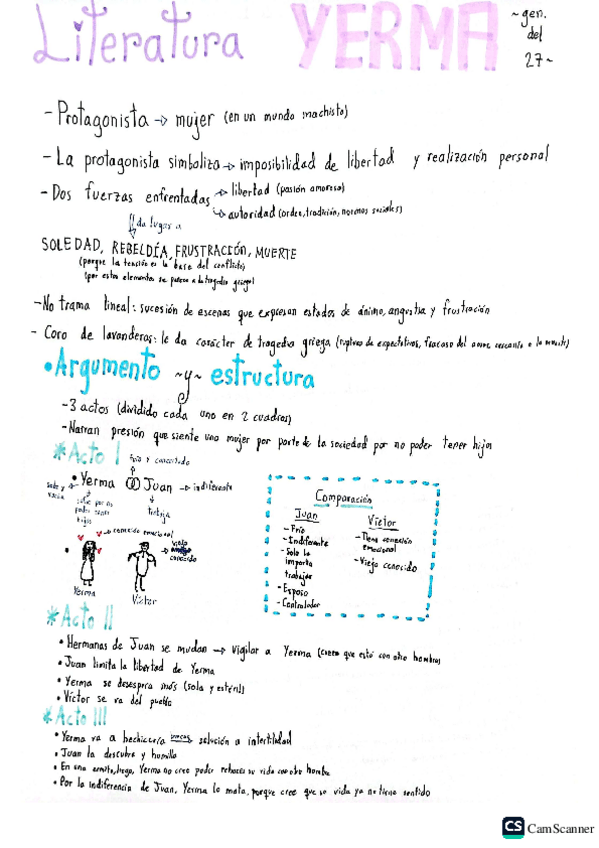 Literatura YERMA ~gen. del 27~
- Protagonista → mujer (en un mundo machista)
- La protagonista simboliza → imposibilidad de libertad y realización personal
- Dos fuerzas enfrentadas → libertad (pasión amorosa)
→ autoridad (orden, tradición, normas sociales)
da lugar a
SOLEDAD, REBELDÍA, FRUSTRACIÓN, MUERTE
(porque la tensión es la base del conflicto)
(por estos elementos se parece a la tragedia griega)
- No trama lineal: sucesión de escenas que expresan estados de ánimo, angustia y frustración
- Coro de lavanderas: le da carácter de tragedia griega (ruptura de expectativas, fracaso del amor, cercanía a la muerte)
• Argumento ~y~ estructura
- 3 actos (dividido cada uno en 2 cuadros)
- Narran presión que siente una mujer por parte de la sociedad por no poder tener hijos
* Acto I
frío y concertado
• Yerma Juan → indiferente
sola y vacía
sufre por no poder tener hijos
trabaja
→ conexión emocional
viejo
conocido
Yerma
Víctor
Comparación
Juan
- Frío
- Indiferente
- Solo le importa trabajar
- Esposo
- Controlador
Víctor
- Tiene conexión emocional
- Viejo conocido
* Acto II
• Hermanas de Juan se mudan → Vigilar a Yerma (creen que está con otro hombre)
• Juan limita la libertad de Yerma
• Yerma se desespera más (sola y estéril)
• Víctor se va del pueblo
* Acto III
• Yerma va a hechicera → solución a infertilidad
• Juan la descubre y humilla
• En una ermita, luego, Yerma no cree poder rehacer su vida con otro hombre
• Por la indiferencia de Juan, Yerma lo mata, porque cree que su vida ya no tiene sentido
CS CamScanner